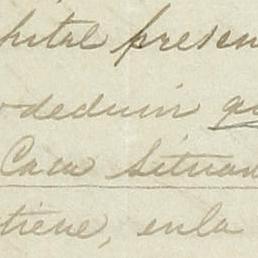 pital presen
deducir qu
Casa Situad
tiene, en la